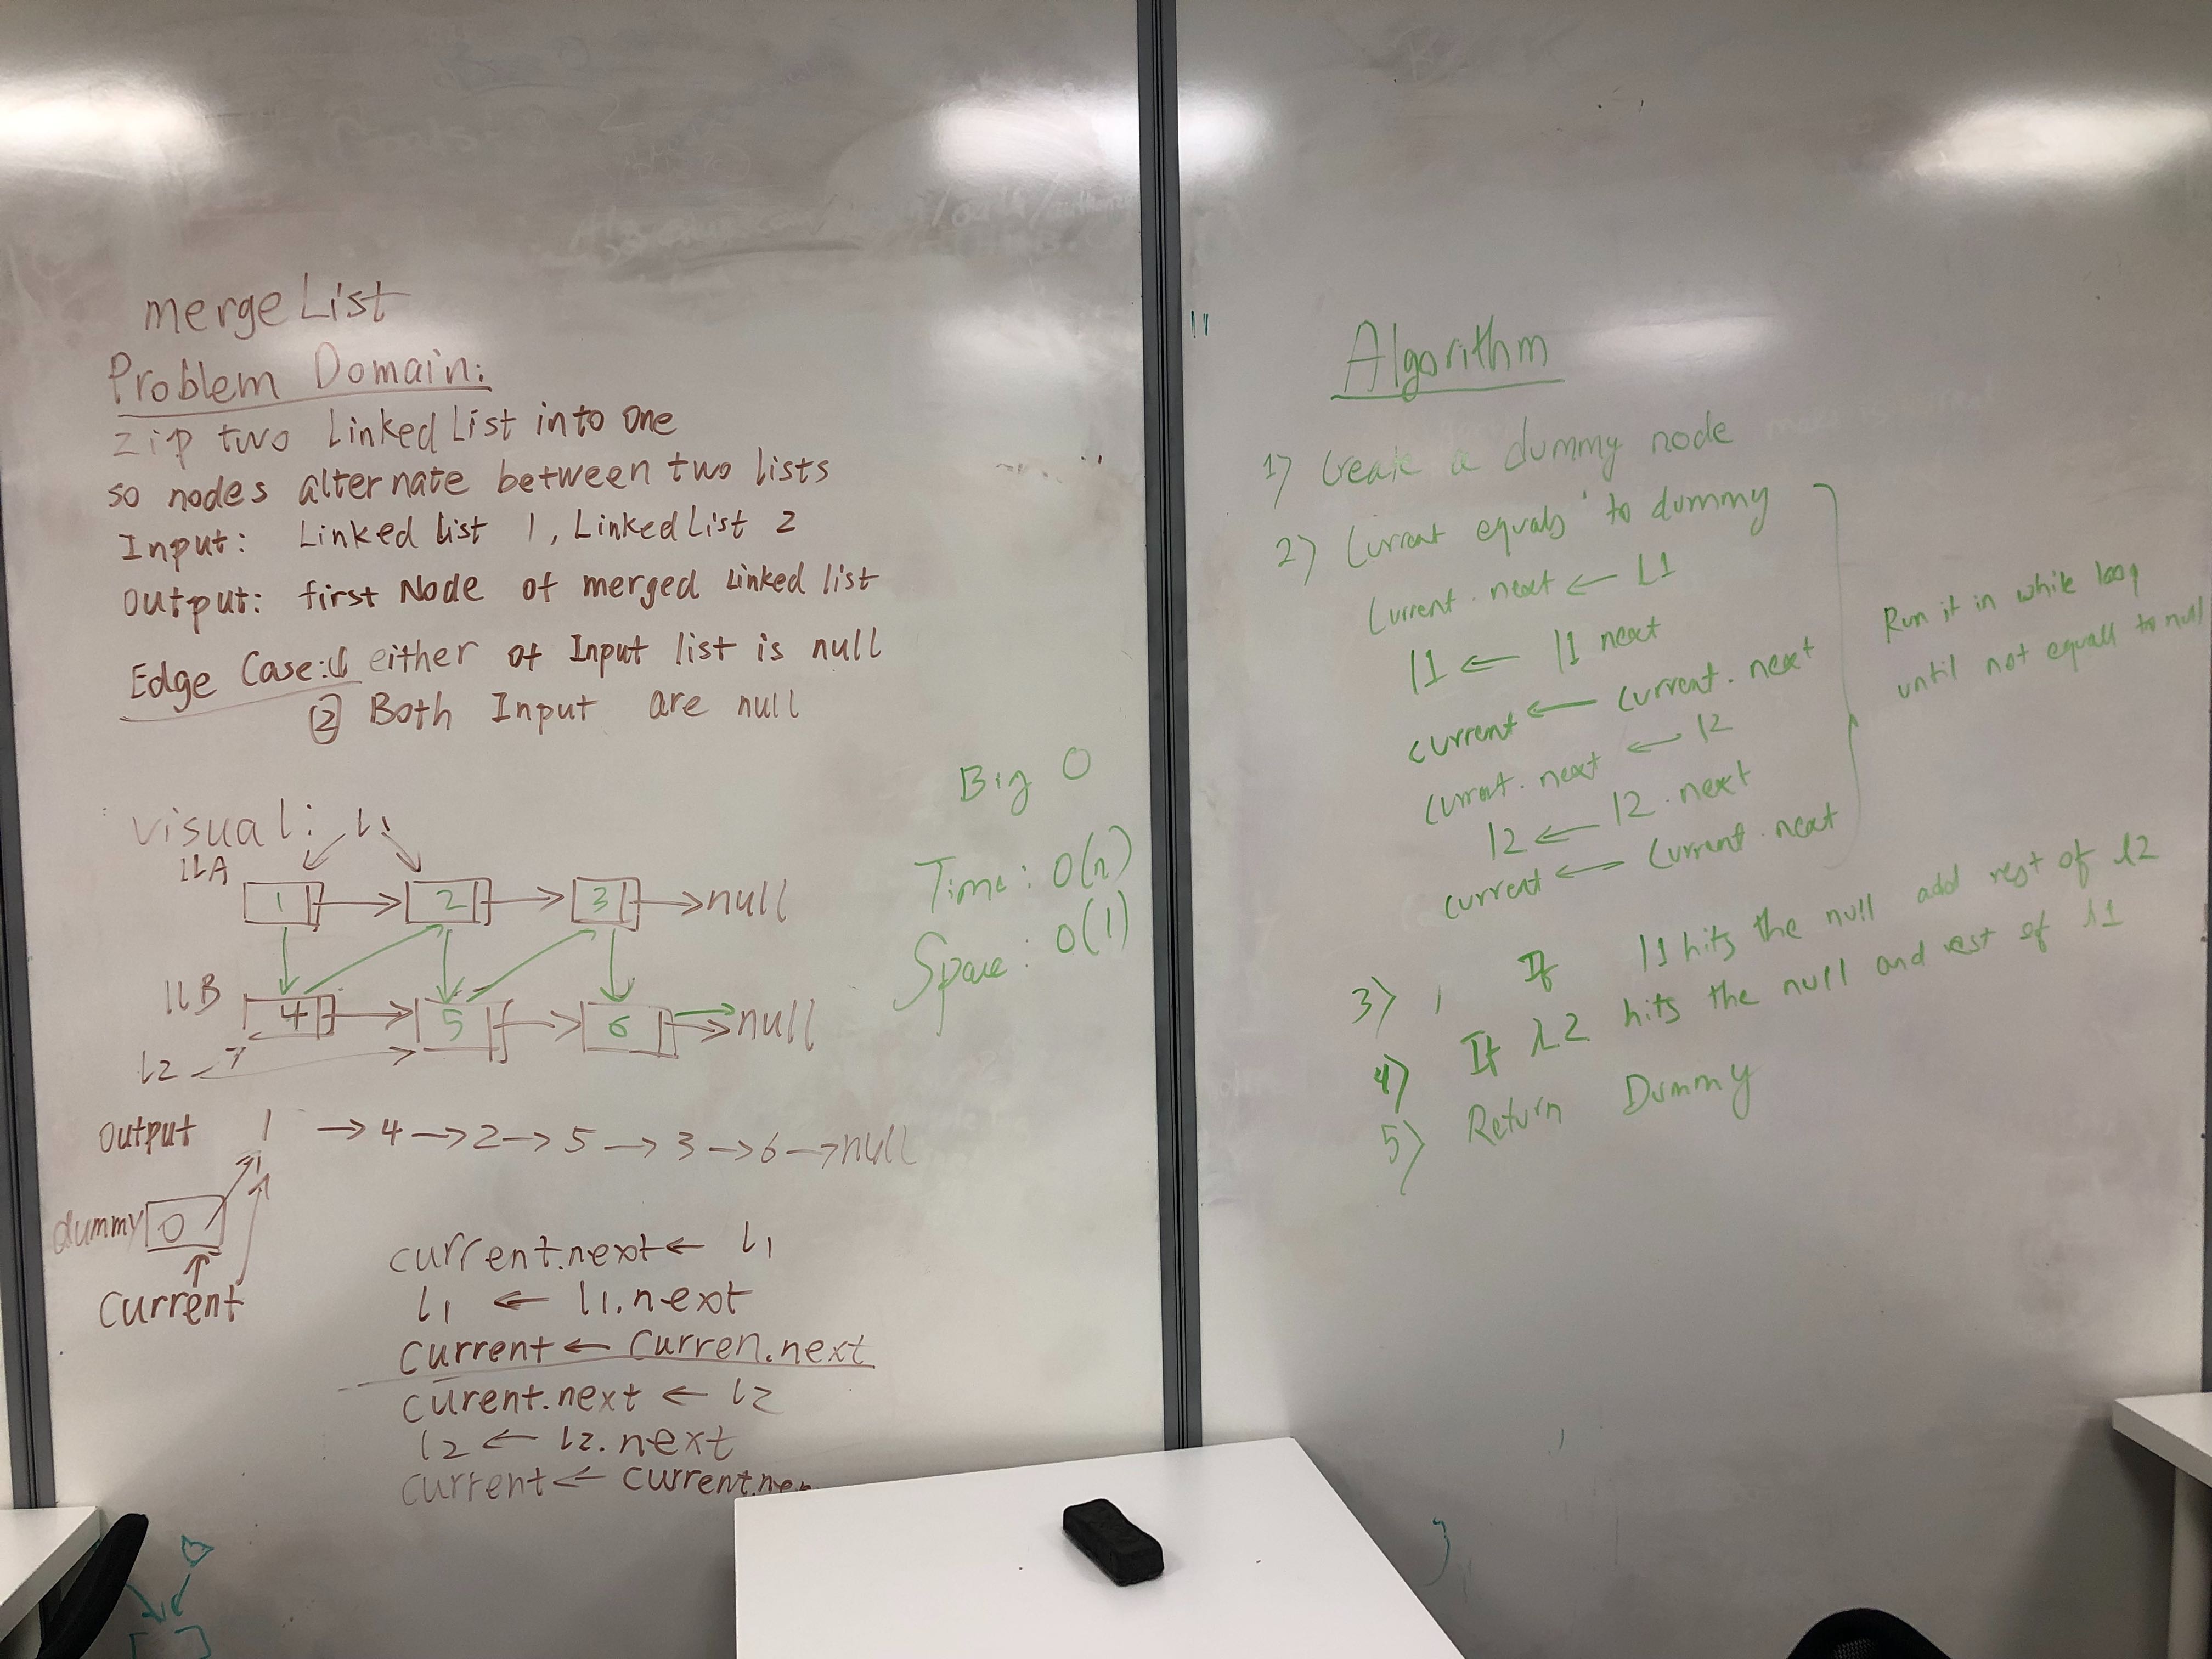 mergeList
Problem Domain:
zip two Linked List into one
so nodes alternate between two lists
Input: Linked list 1, Linked List 2
Output: first Node of merged Linked list
Edge Case: ① either of Input list is null
② Both Input are null
visual: l1
llA
1 → 2 → 3 → null
llB
4 → 5 → 6 → null
l2
Output 1 → 4 → 2 → 5 → 3 → 6 → null
dummy 0
Current
current.next ← l1
l1 ← l1.next
Current ← Curren.next
curent.next ← l2
l2 ← l2.next
current ← current.nex
Big O
Time: O(n)
Space: O(1)
Algorithm
1) Create a dummy node
2) Current equals to dummy
Current.next ← L1
l1 ← l1 next
current ← current.next
Current.next ← l2
l2 ← l2.next
current ← Current.next
Run it in while loop
until not equall to null
3) If l1 hits the null add rest of l2
4) If l2 hits the null and rest of l1
5) Return Dummy